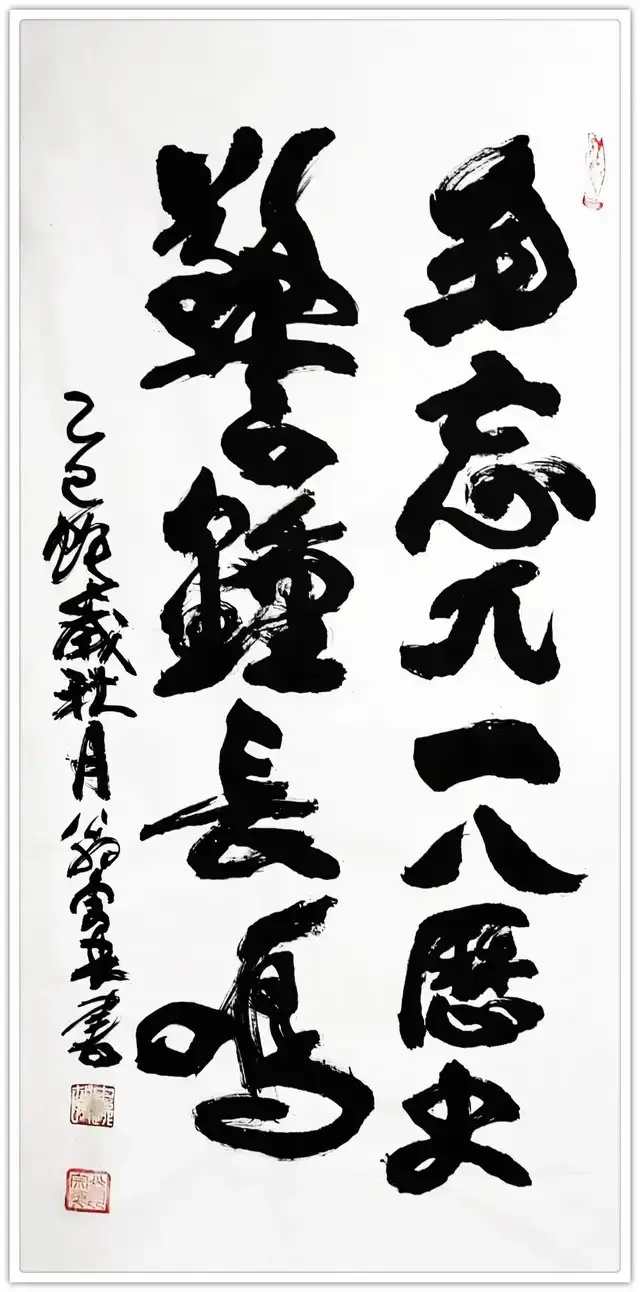 毋忘九一八歷史
警鐘長鳴
乙巳蛇歲秋月翁書